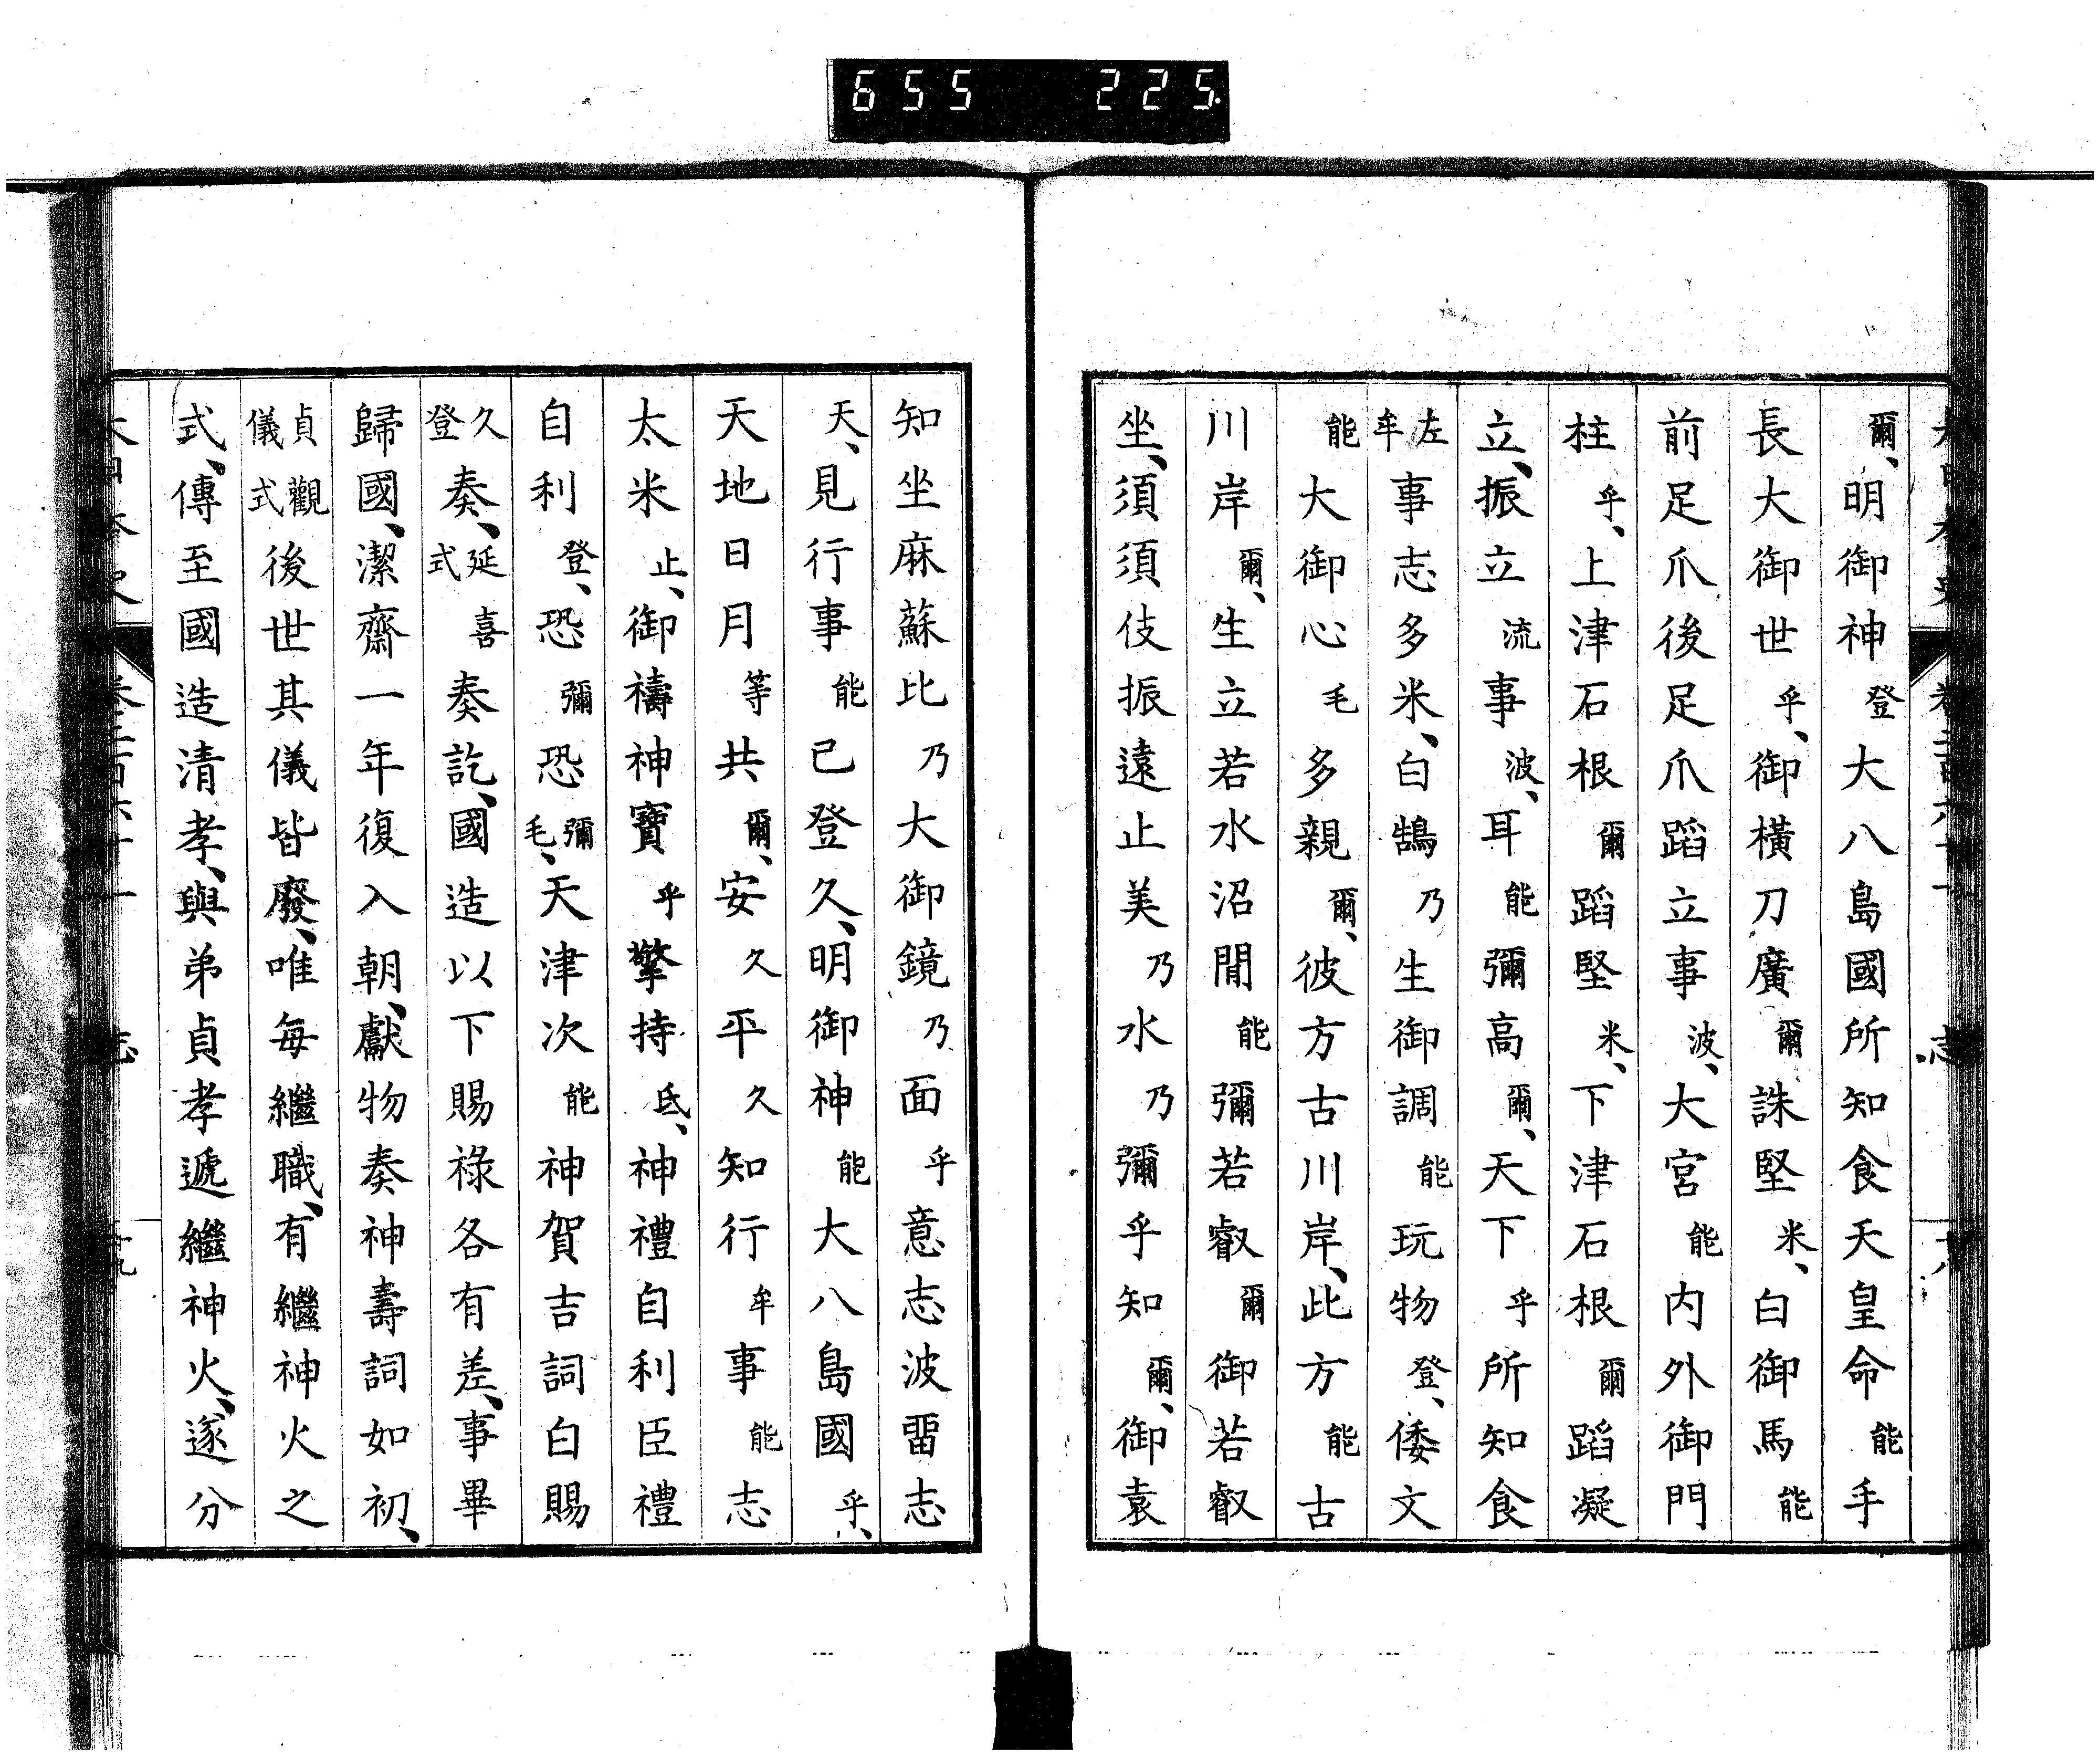 655 225.
爾、明御神登大八島國所知食天皇命能手
長大御世乎、御橫刀廣爾誅堅米、白御馬能
前足爪後足爪蹈立事波、大宮能內外御門
柱乎、上津石根爾蹈堅米、下津石根爾蹈凝
立、振立流事波、耳能彌高爾、天下乎所知食
左牟事志多米、白鵠乃生御調能玩物登、倭文
能大御心毛多親爾、彼方古川岸、此方能古
川岸爾、生立若水沼閒能彌若叡爾御若叡
坐、須須伎振遠止美乃水乃彌乎知爾、御袁
知坐麻蘇比乃大御鏡乃面乎意志波畱志
天、見行事能己登久、明御神能大八島國乎、
天地日月等共爾、安久平久知行牟事能志
太米止、御禱神寶乎擎持氐、神禮自利臣禮
自利登、恐彌恐彌毛、天津次能神賀吉詞白賜
久登奏、延喜式奏訖、國造以下賜祿各有差、事畢
歸國、潔齋一年復入朝、獻物奏神壽詞如初、
貞觀儀式後世其儀皆廢、唯每繼職、有繼神火之
式、傳至國造清孝、與弟貞孝遞繼神火、遂分